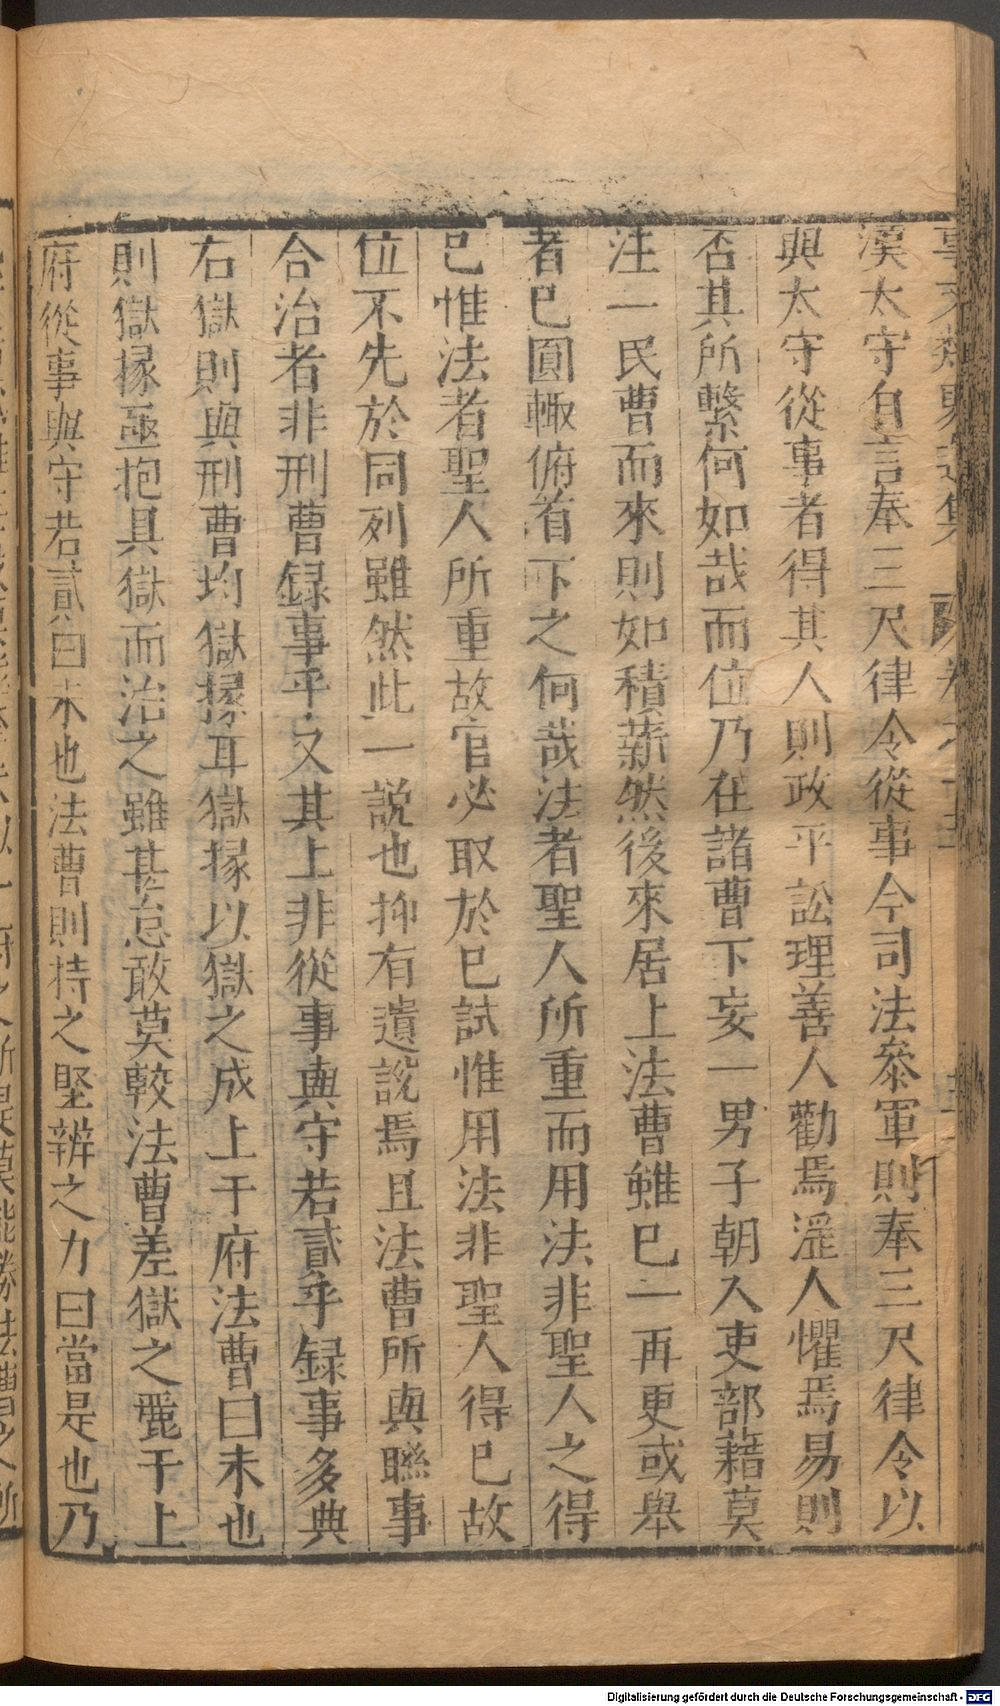 漢太守自言奉三尺律令從事今司法叅軍則奉三尺律令以
與太守從事者得其人則政平訟理善人勸焉淫人懼焉易則
否其所繫何如哉而位乃在諸曹下妄一男子朝入吏部籍莫
注一民曹而來則如積薪然後來居上法曹雖已一再更或舉
者已圓輙俯首下之何哉法者聖人所重而用法非聖人之得
已惟法者聖人所重故官必取於已試惟用法非聖人得已故
位不先於同列雖然此一說也抑有遺說焉且法曹所與聯事
合治者非刑曹録事乎又其上非從事與守若貳乎録事多典
右獄則與刑曹均獄掾耳獄掾以獄之成上于府法曹曰未也
則獄掾亟抱具獄而治之雖甚怠敢莫較法曹差獄之麗于上
府從事與守若貳曰未也法曹則持之堅辨之力曰當是也乃
Digitalisierung gefördert durch die Deutsche Forschungsgemeinschaft - DFG